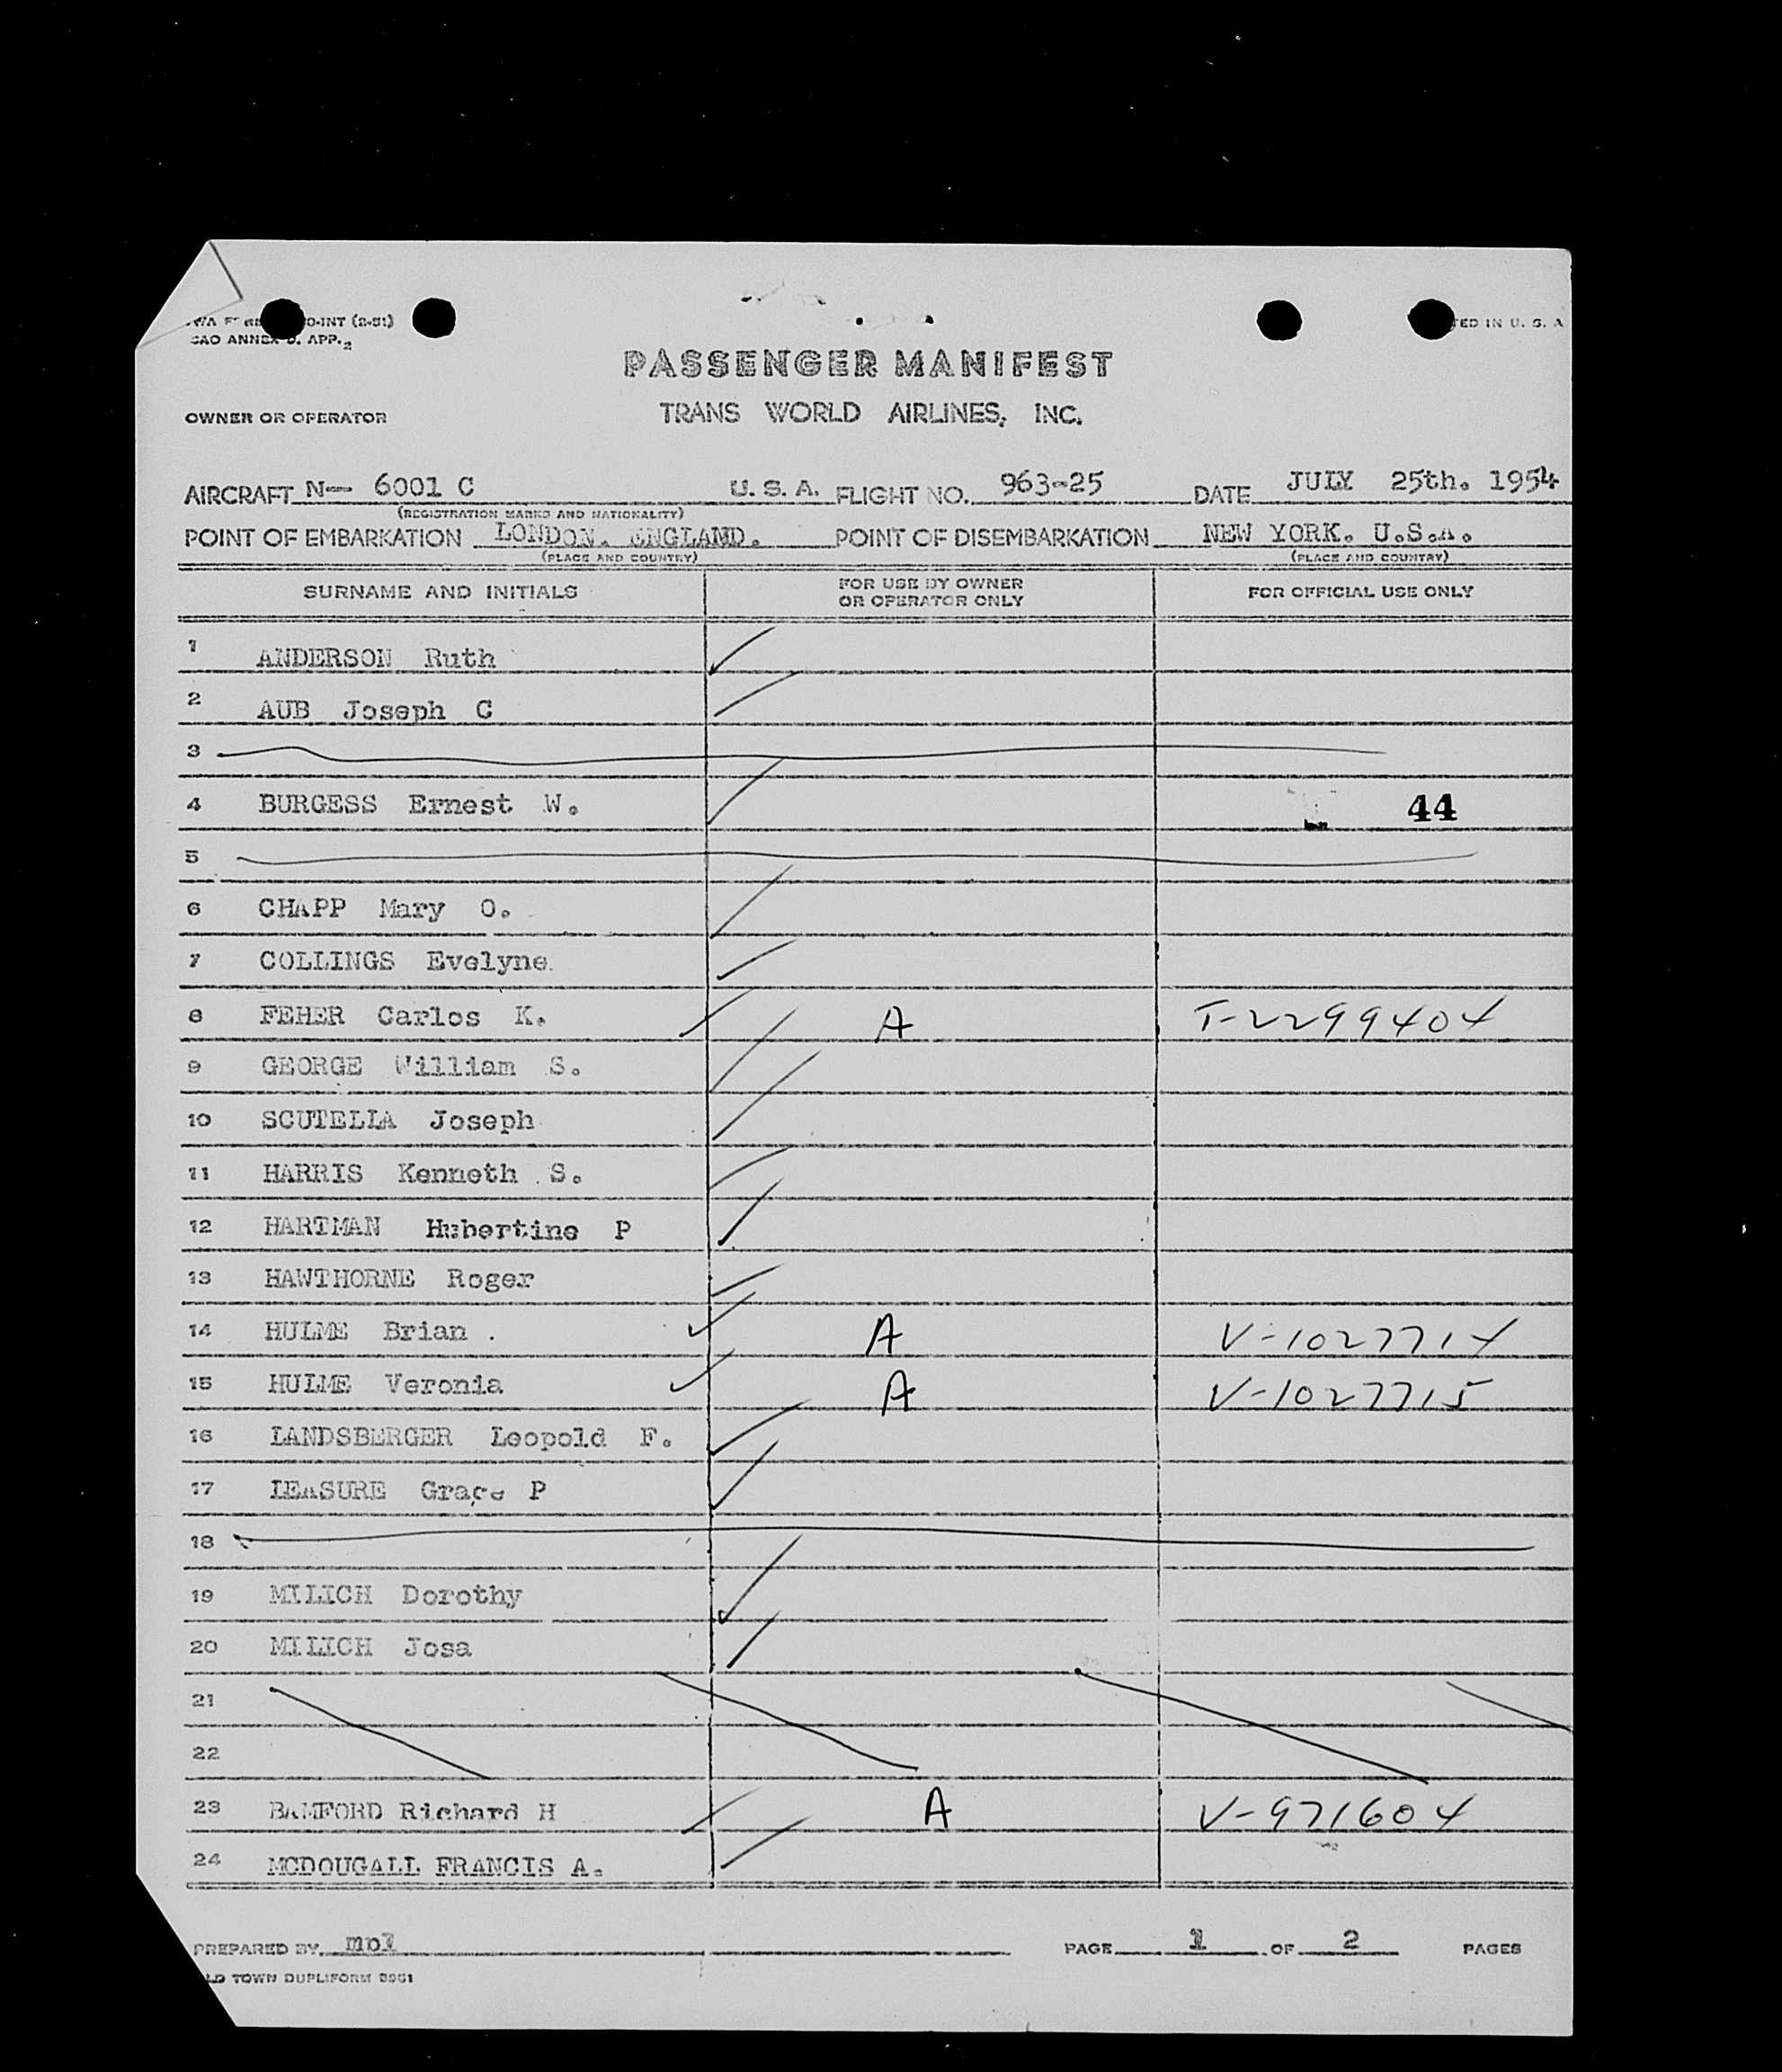 ICAO ANNEX 9. APP. 2
PASSENGER MANIFEST
OWNER OR OPERATOR TRANS WORLD AIRLINES, INC.
AIRCRAFT N— 6001 C U. S. A. FLIGHT NO. 963-25 DATE JULY 25th. 1954
(REGISTRATION MARKS AND NATIONALITY)
POINT OF EMBARKATION LONDON. ENGLAND. POINT OF DISEMBARKATION NEW YORK. U.S.A.
(PLACE AND COUNTRY) (PLACE AND COUNTRY)
SURNAME AND INITIALS FOR USE BY OWNER OR OPERATOR ONLY FOR OFFICIAL USE ONLY
1 ANDERSON Ruth
2 AUB Joseph C
3
4 BURGESS Ernest W. 44
5
6 CHAPP Mary O.
7 COLLINGS Evelyne
8 FEHER Carlos K. A T-2299404
9 GEORGE William S.
10 SCUTELLA Joseph
11 HARRIS Kenneth S.
12 HARTMAN Hubertine P
13 HAWTHORNE Roger
14 HULME Brian . A V-1027714
15 HULME Veronia A V-1027715
16 LANDSBERGER Leopold F.
17 LEASURE Grace P
18
19 MILICH Dorothy
20 MILICH Josa
21
22
23 BAMFORD Richard H A V-971604
24 MCDOUGALL FRANCIS A.
PREPARED BY PAGE 1 OF 2 PAGES
OLD TOWN DUPLIFORM